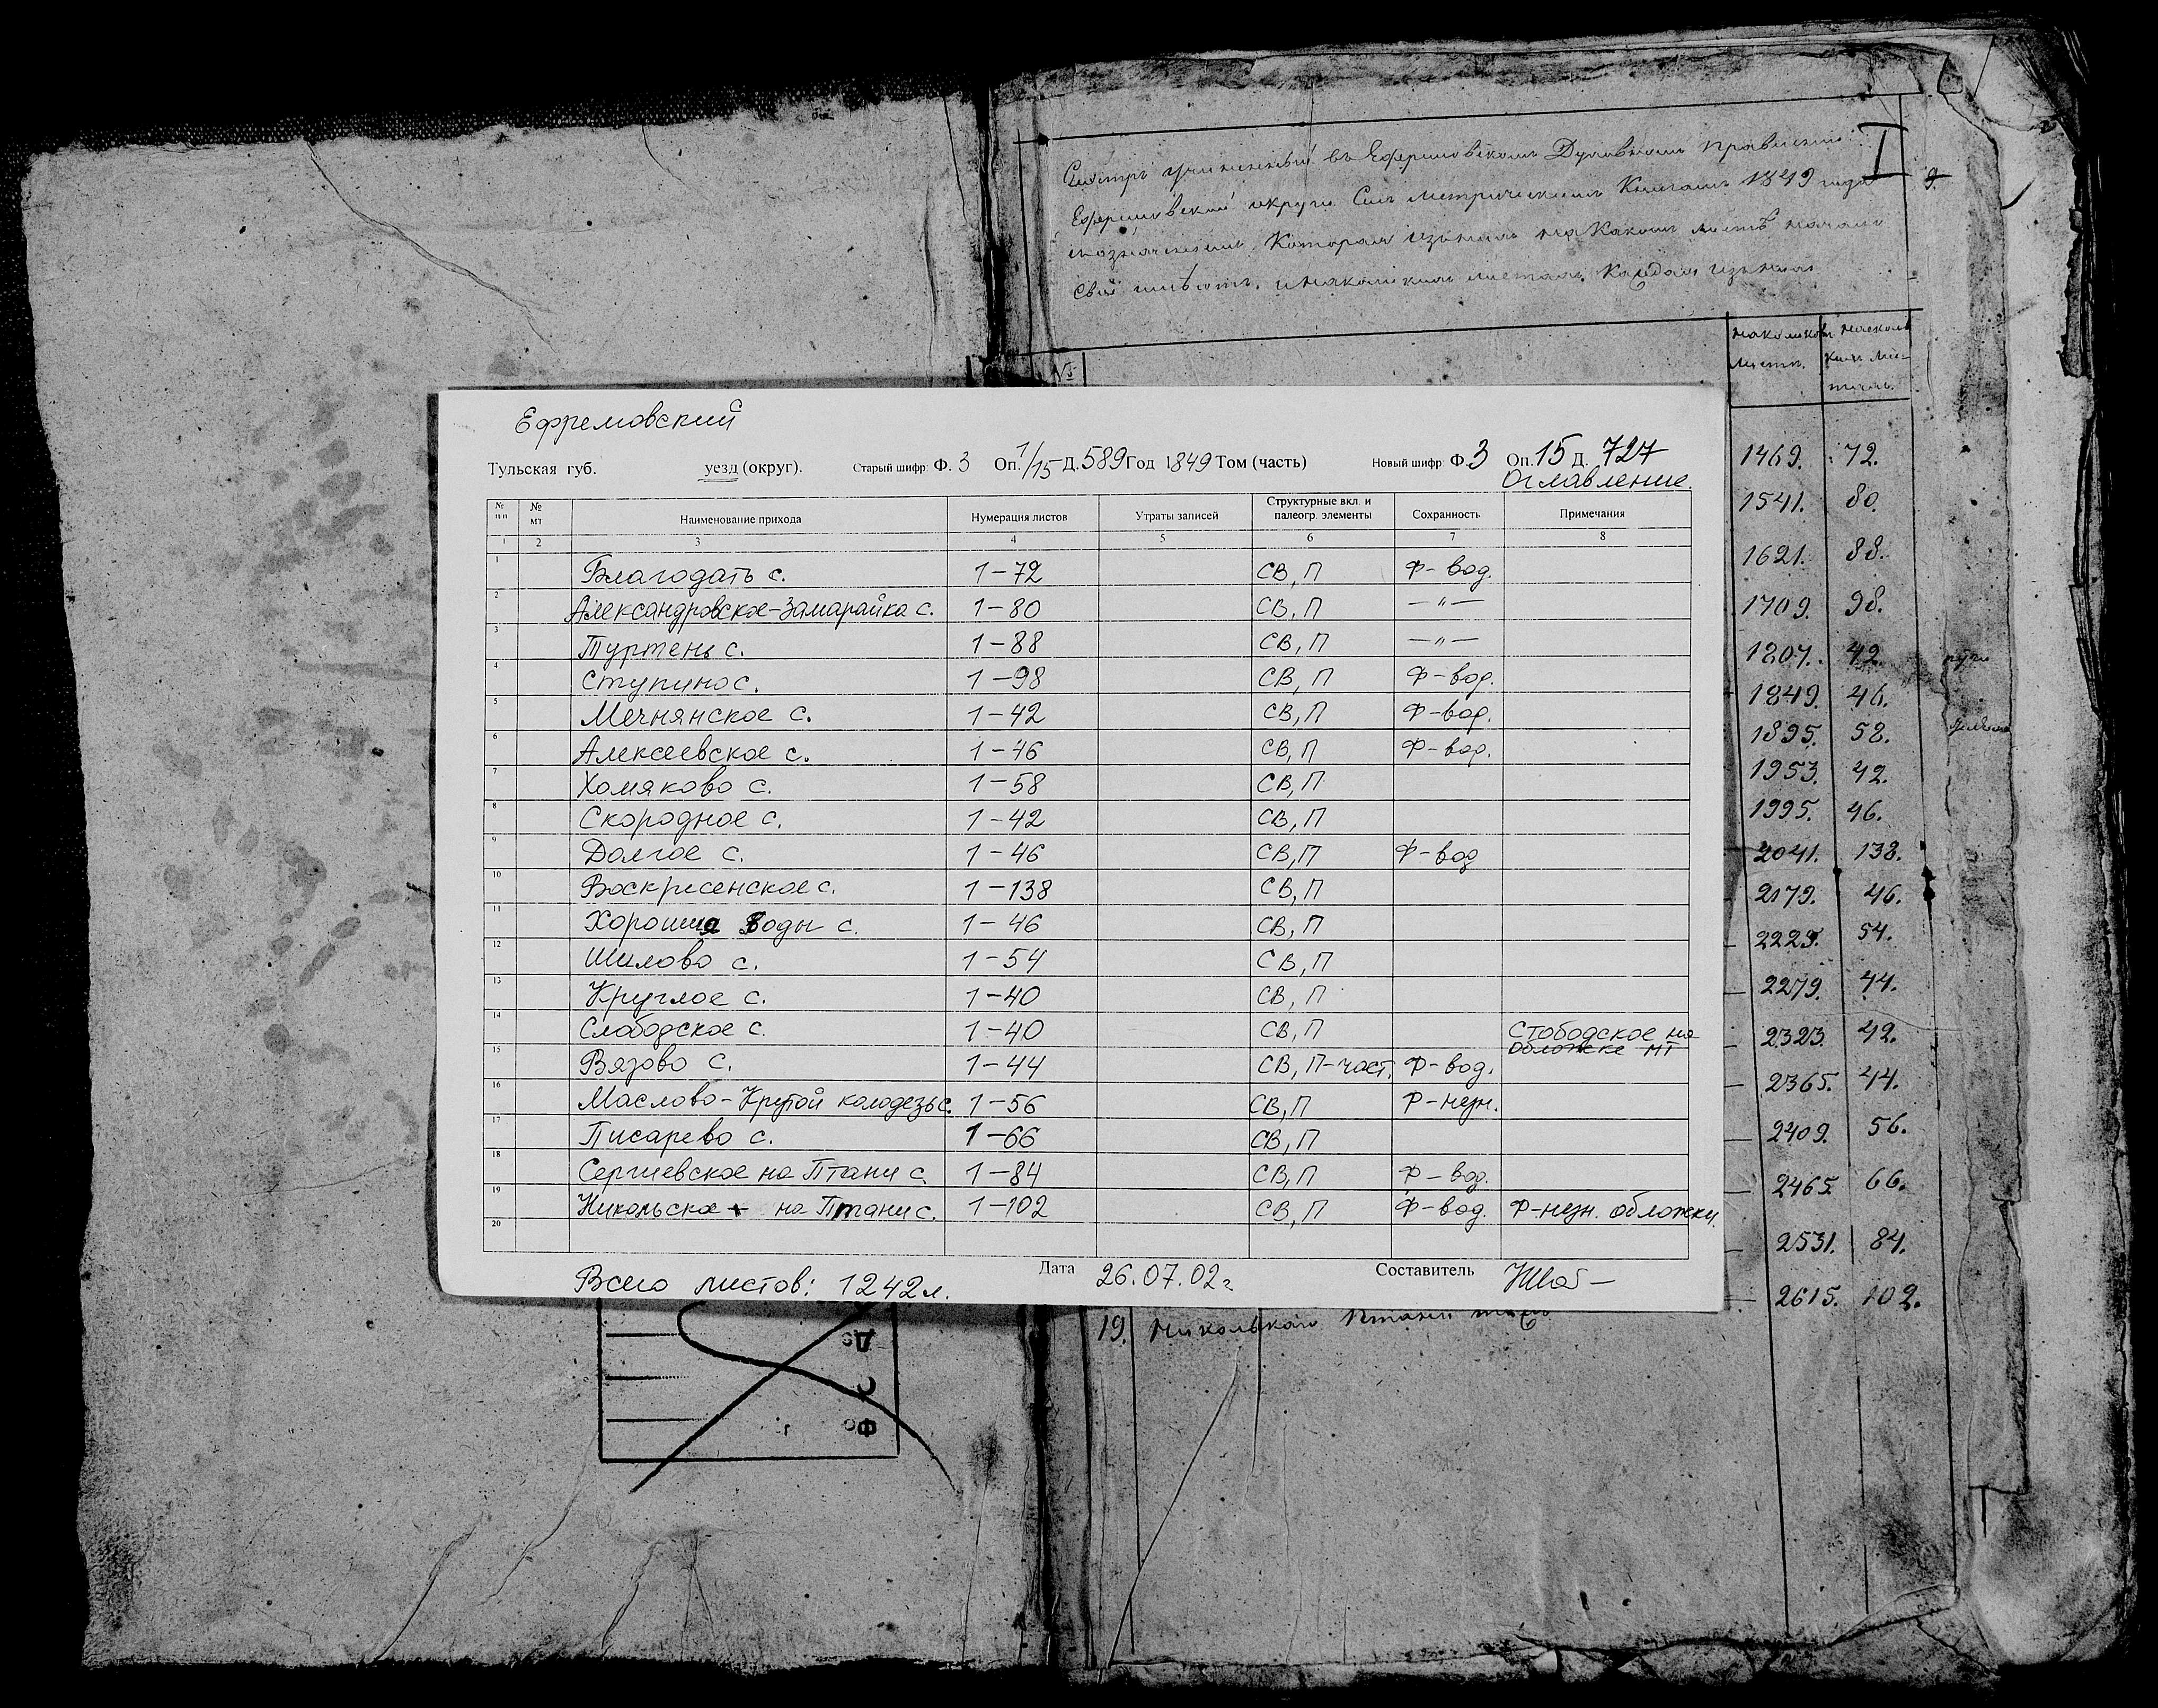 Реэстръ учиненный въ Ефремовскомъ Духовномъ Правлении
Ефремовской округи Симъ метрическимъ Книгамъ 1849 года
Которая изъ нихъ на Какомъ листѣ начало
Свое имѣетъ, и на коликихъ листахъ Каждая изъ нихъ
I
9.
№
на коликом листѣ.
на сколь ких лис тахъ.
Ефремовский
Тульская губ. уезд (округ). Старый шифр: Ф. 3 Оп. 1/15 Д. 589 Год 1849 Том (часть) Новый шифр: Ф. 3 Оп. 15 Д. 727
Оглавление.
№ п п № мт Наименование прихода Нумерация листов Утраты записей Структурные вкл. и палеогр. элементы Сохранность Примечания
1 2 3 4 5 6 7 8
1 Благодать с. 1-72 СВ, П Ф-вод.
2 Александровское-Замарайка с. 1-80 СВ, П —"—
3 Туртень с. 1-88 СВ, П —"—
4 Ступино с. 1-98 СВ, П Ф-вод.
5 Мечнянское с. 1-42 СВ, П Ф-вод.
6 Алексеевское с. 1-46 СВ, П Ф-вод.
7 Хомяково с. 1-58 СВ, П
8 Скородное с. 1-42 СВ, П
9 Долгое с. 1-46 СВ, П Ф-вод
10 Воскресенское с. 1-138 СВ, П
11 Хорошия Воды с. 1-46 СВ, П
12 Шилово с. 1-54 СВ, П
13 Круглое с. 1-40 СВ, П
14 Слободское с. 1-40 СВ, П Стободское на обложке МТ
15 Вязово с. 1-44 СВ, П-част. Ф-вод.
16 Маслово-Крутой колодезь с. 1-56 СВ, П Ф-незн.
17 Писарево с. 1-66 СВ, П
18 Сергиевское на Птани с. 1-84 СВ, П Ф-вод.
19 Никольское на Птани с. 1-102 СВ, П Ф-вод. Ф-незн. обложки.
20
Всего листов: 1242 л. Дата 26.07.02 г. Составитель
1469. 72.
1541. 80.
1621. 88.
1709. 98.
1807. 42.
1849. 46.
1895. 58.
1953. 42.
1995. 46.
2041. 138.
2179. 46.
2225. 54.
2279. 44.
2323. 42.
2365. 44.
2409. 56.
2465. 66.
2531. 84.
2615. 102.
19. Никольскаго Птани тожъ
Фо